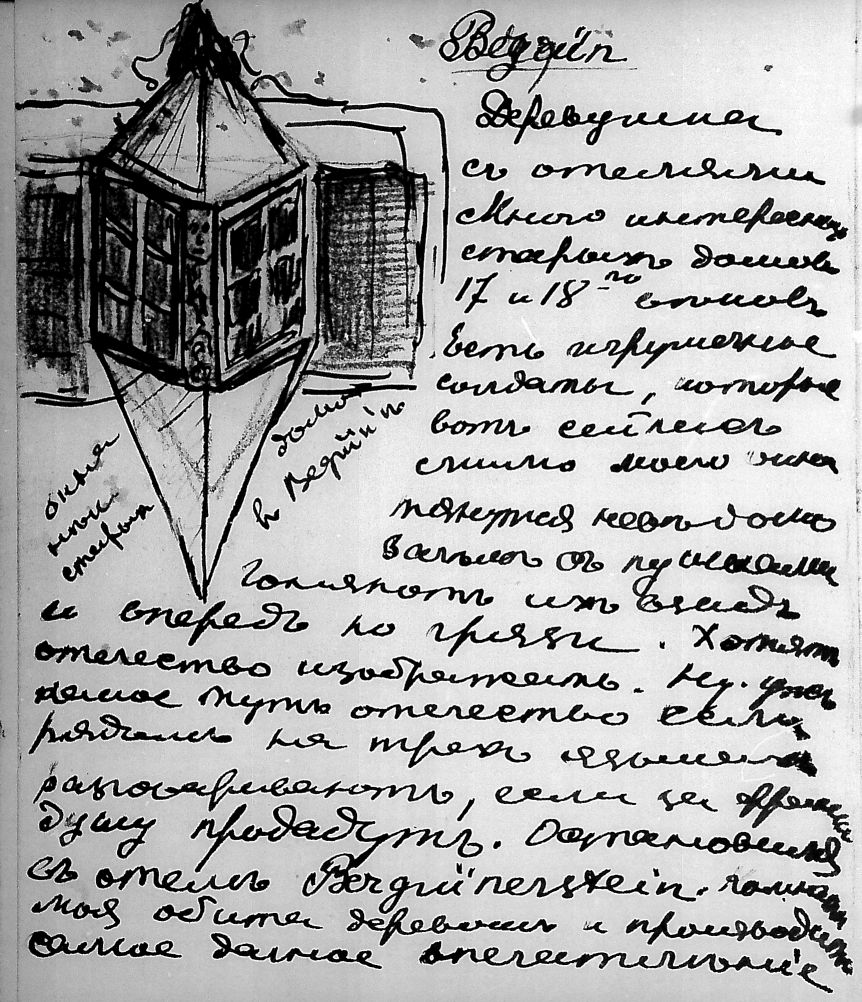 Bergün
Деревушка
съ отелями
Много интересныхъ
старыхъ домовъ
17 и 18-го вѣковъ
Есть игрушечные
солдаты, которые
вотъ сейчасъ
мимо моего окна
тянутся
съ пушками
Гоняютъ ихъ взадъ
и впередъ по грязи. Хотятъ
отечество изображать. Ну. ужъ
какое тутъ отечество если
рядомъ на трехъ языкахъ
разговариваютъ, если за франкъ
душу продадутъ. Остановился
въ отелѣ Bergünerstein. Комната
моя обита деревомъ и производитъ
самое дачное впечатлѣніе
окна
старыхъ
домовъ
въ Bergün'ѣ